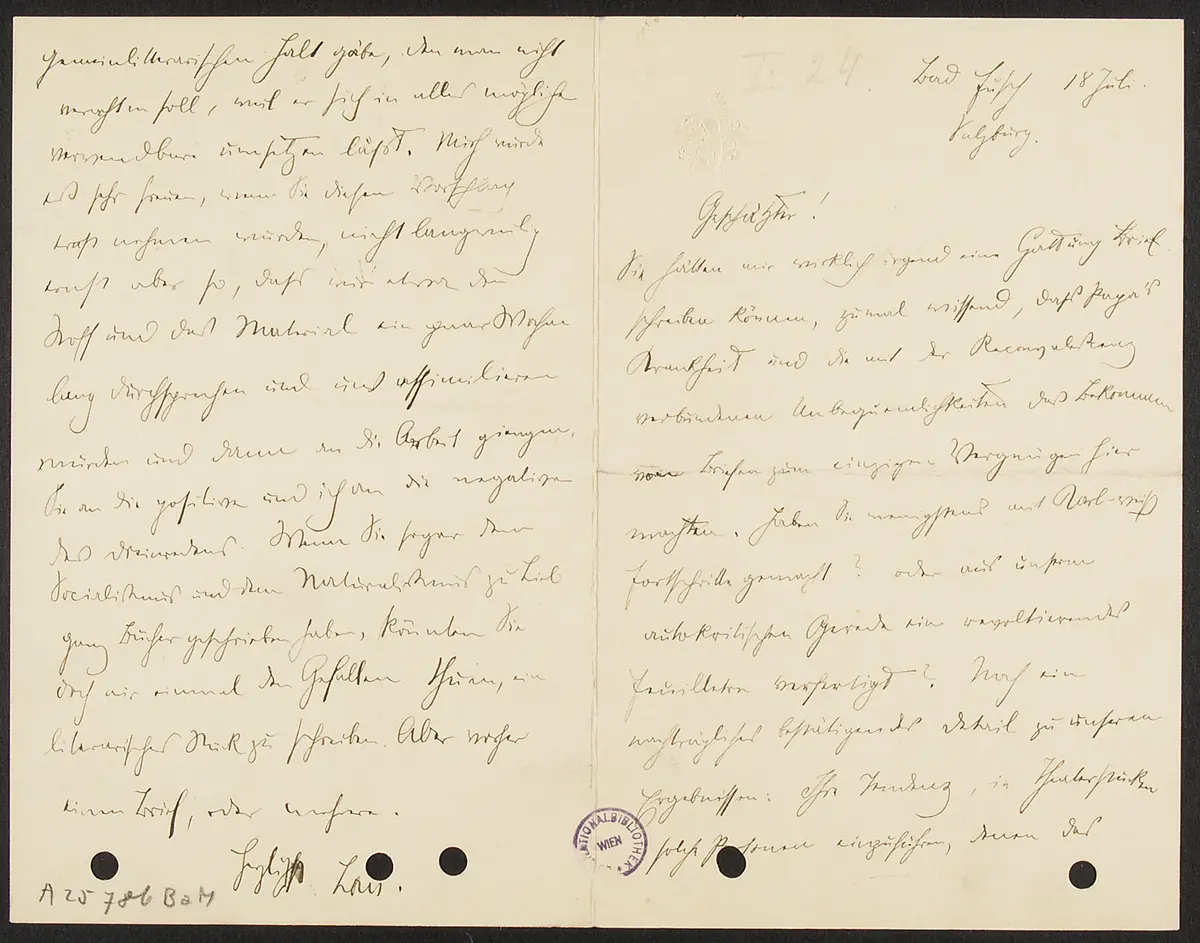 I: 24
Bad Fusch 18 Juli.
Salzburg.
Geschätzter!
Sie hätten mir wirklich irgend eine Gattung Brief
schreiben können, zumal wissend, dass Papa's
Krankheit und die mit der Reconvalescenz
verbundenen Unbequemlichkeiten das Bekommen
von Briefen zum einzigen Vergnügen hier
machten. Haben Sie wenigstens mit
Fortschritte gemacht? oder aus unserem
autokritischen Gerede ein revoltierendes
Feuilleton verfertigt? Noch ein
nachträgliches bestätigendes Detail zu unseren
Ergebnissen: Ihre Tendenz, in Theaterstücken
solche Personen einzuführen, denen das
NATIONALBIBLIOTHEK WIEN
gemeinlitterarischen Halt gäbe, den man nicht
verachten soll, weil er sich in alles mögliche
verwendbare umsetzen läfst. Mich würde
es sehr freuen, wenn Sie diesen Vorschlag
ernst nehmen würden, nicht langweilig
ernst aber so, dass wir etwa den
Stoff und das Material ein paar Wochen
lang durchsprechen und uns assimilieren
würden und dann an die Arbeit giengen,
Sie an die positive und ich an die negative
des dreinredens. Wenn Sie sogar dem
Socialismus und dem Naturalismus zu Lieb
ganz Bücher geschrieben haben, könnten Sie
doch mir einmal den Gefallen thuen, ein
literarisches Stück zu schreiben. Aber vorher
einen Brief, oder mehrere.
Herzlichst Loris.
A 25 786 BaM